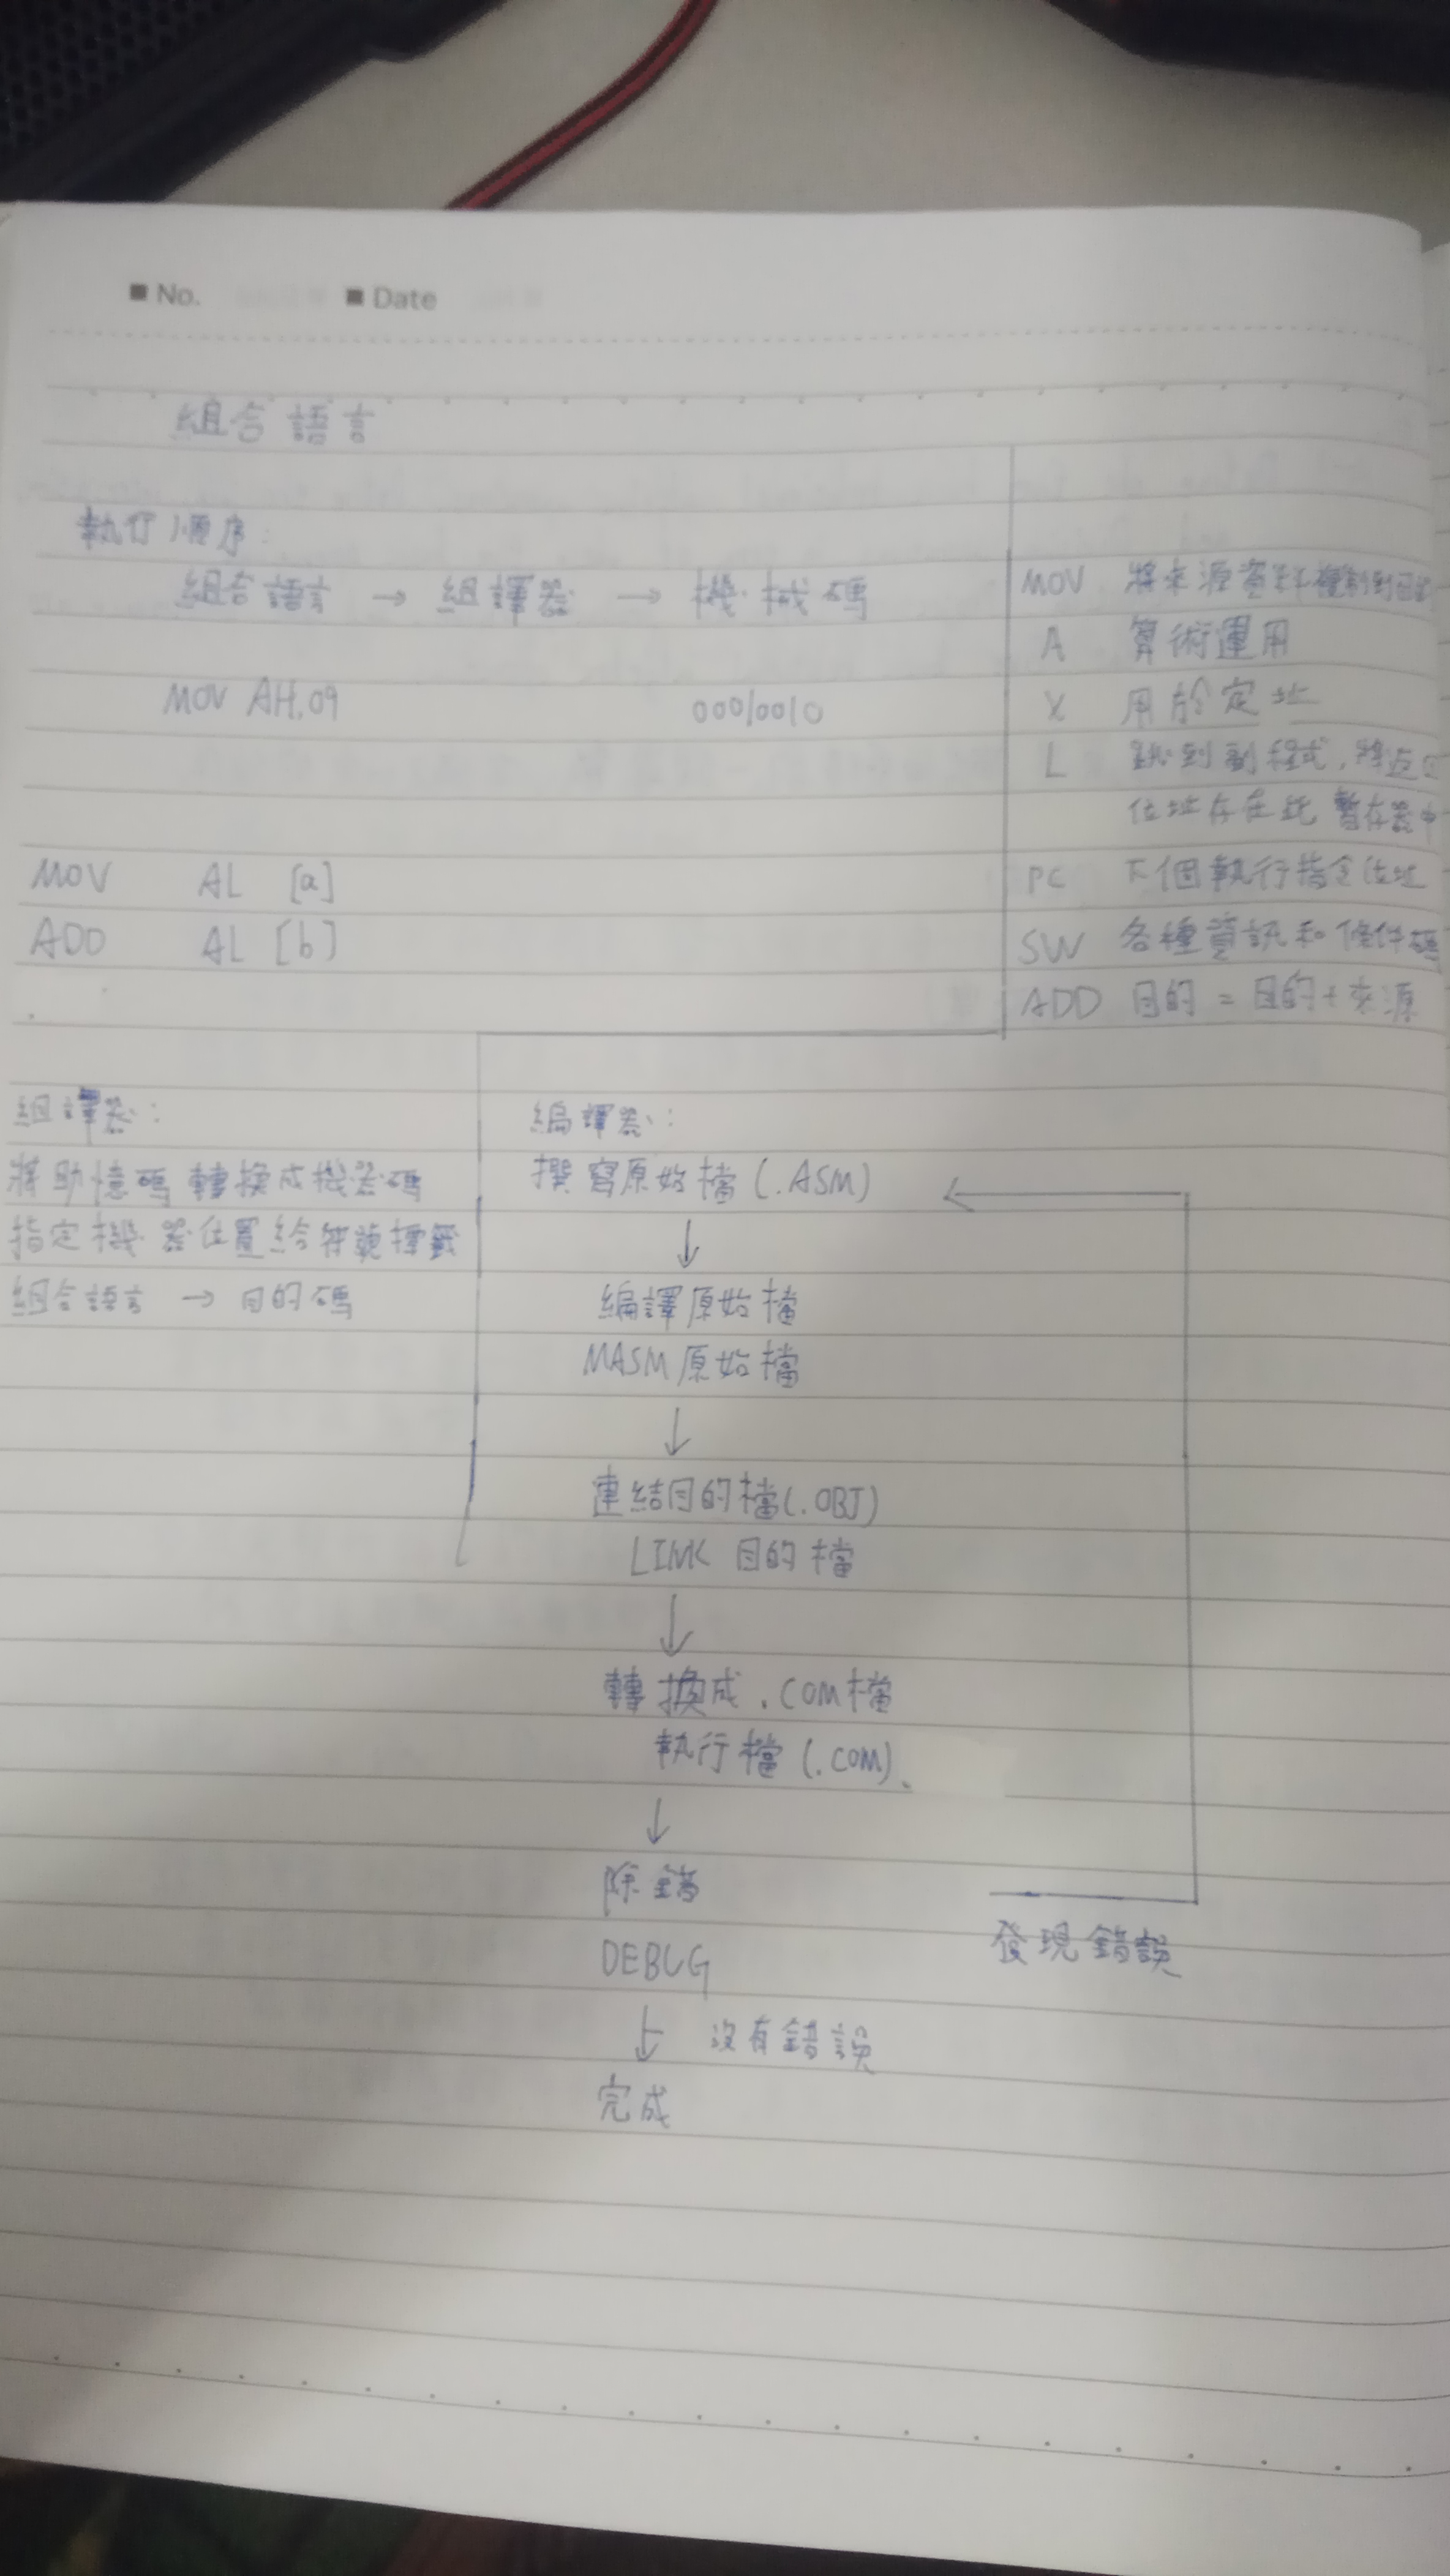 ■ No. ■ Date
組合語言
執行順序:
組合語言 → 組譯器 → 機械碼
MOV AH,09 00010010
MOV AL [a]
ADD AL [b]
MOV 將來源資料複製到目的
A 算術運用
X 用於定址
L 跳到副程式,將返回
位址存在此暫存器中
PC 下個執行指令位址
SW 各種資訊和條件碼
ADD 目的 = 目的 + 來源
組譯器:
將助憶碼轉換成機器碼
指定機器位置給符號標籤
組合語言 → 目的碼
編譯器:
撰寫原始檔(.ASM)
↓
編譯原始檔
MASM原始檔
↓
連結目的檔(.OBJ)
LINK 目的檔
↓
轉換成.COM檔
執行檔(.COM)
↓
除錯
DEBUG
發現錯誤
↓ 沒有錯誤
完成